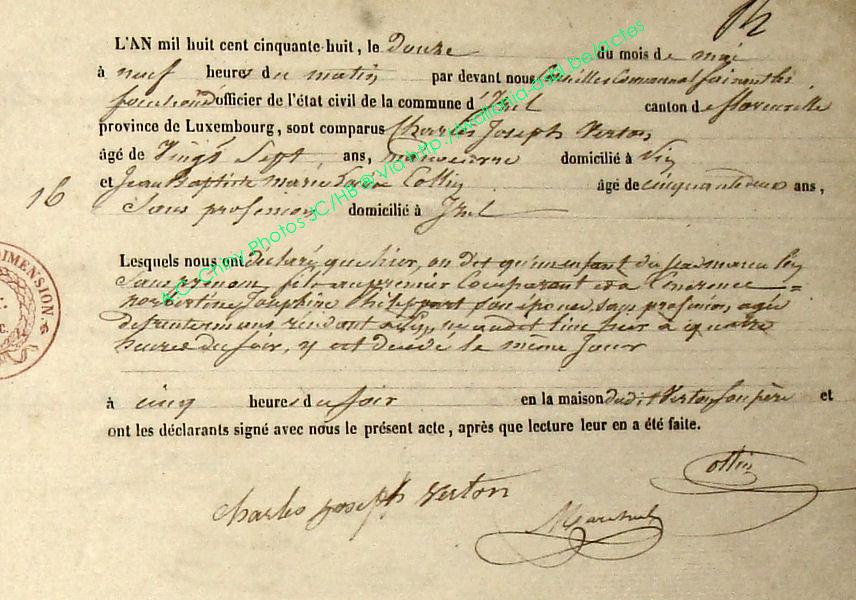 L'AN mil huit cent cinquante-huit, le douze du mois de mai
à neuf heures du matin par devant nous Communal faisant les
fonctions d'officier de l'état civil de la commune d'Izel canton de florenville
province de Luxembourg, sont comparus Charles Joseph Verton,
âgé de Vingt Sept ans, domicilié à
16
et Jean Baptiste Marie Collin âgé de cinquante deux ans,
Sans profession domicilié à Izel
Lesquels nous ont déclaré que hier, on dit qu'un enfant du sexe
Sans prénom, fils au premier Comparant et à
norbertine Josephine son épouse, sans profession, agée
de trente ans, résidant à né audit lieu hier à quatre
heures du soir, y est décédé le même jour
à cinq heures du soir en la maison dudit Verton son père et
ont les déclarants signé avec nous le présent acte, après que lecture leur en a été faite.
Collin
Charles joseph Verton
DIMENSION
A.C. Chiny Photos JC/HB @ via http://wallonia-asbl.be/actes